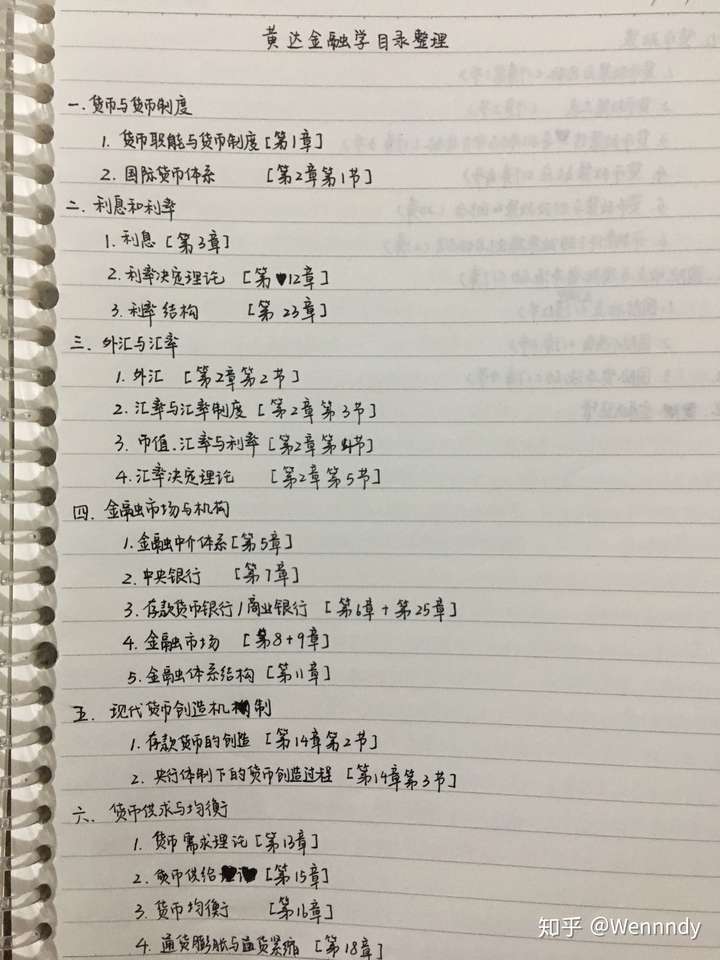 黄达金融学目录整理
一.货币与货币制度
1. 货币职能与货币制度[第1章]
2. 国际货币体系 [第2章第1节]
二.利息和利率
1.利息 [第3章]
2.利率决定理论 [第12章]
3.利率结构 [第23章]
三.外汇与汇率
1.外汇 [第2章第2节]
2.汇率与汇率制度 [第2章第3节]
3.币值.汇率与利率[第2章第4节]
4.汇率决定理论 [第2章第5节]
四.金融市场与机构
1.金融中介体系[第5章]
2.中央银行 [第7章]
3.存款货币银行/商业银行 [第6章+第25章]
4.金融市场 [第8+9章]
5.金融体系结构 [第11章]
五.现代货币创造机制
1.存款货币的创造 [第14章第2节]
2. 央行体制下的货币创造过程 [第14章第3节]
六.货币供求与均衡
1. 货币需求理论[第13章]
2. 货币供给 [第15章]
3. 货币均衡 [第16章]
4. 通货膨胀与通货紧缩 [第18章]
知乎 @Wennndy